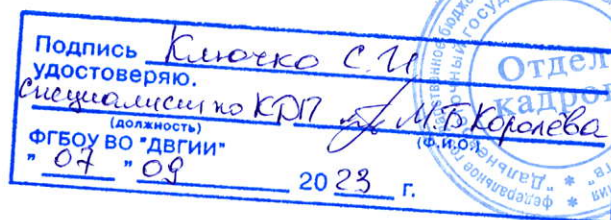 Подпись Ключко С.И
удостоверяю.
специалист по КДП М.Б Королёва
(должность) (Ф.И.О.)
ФГБОУ ВО "ДВГИИ"
" 07 " 09 2023 г.
Отдел
кадров